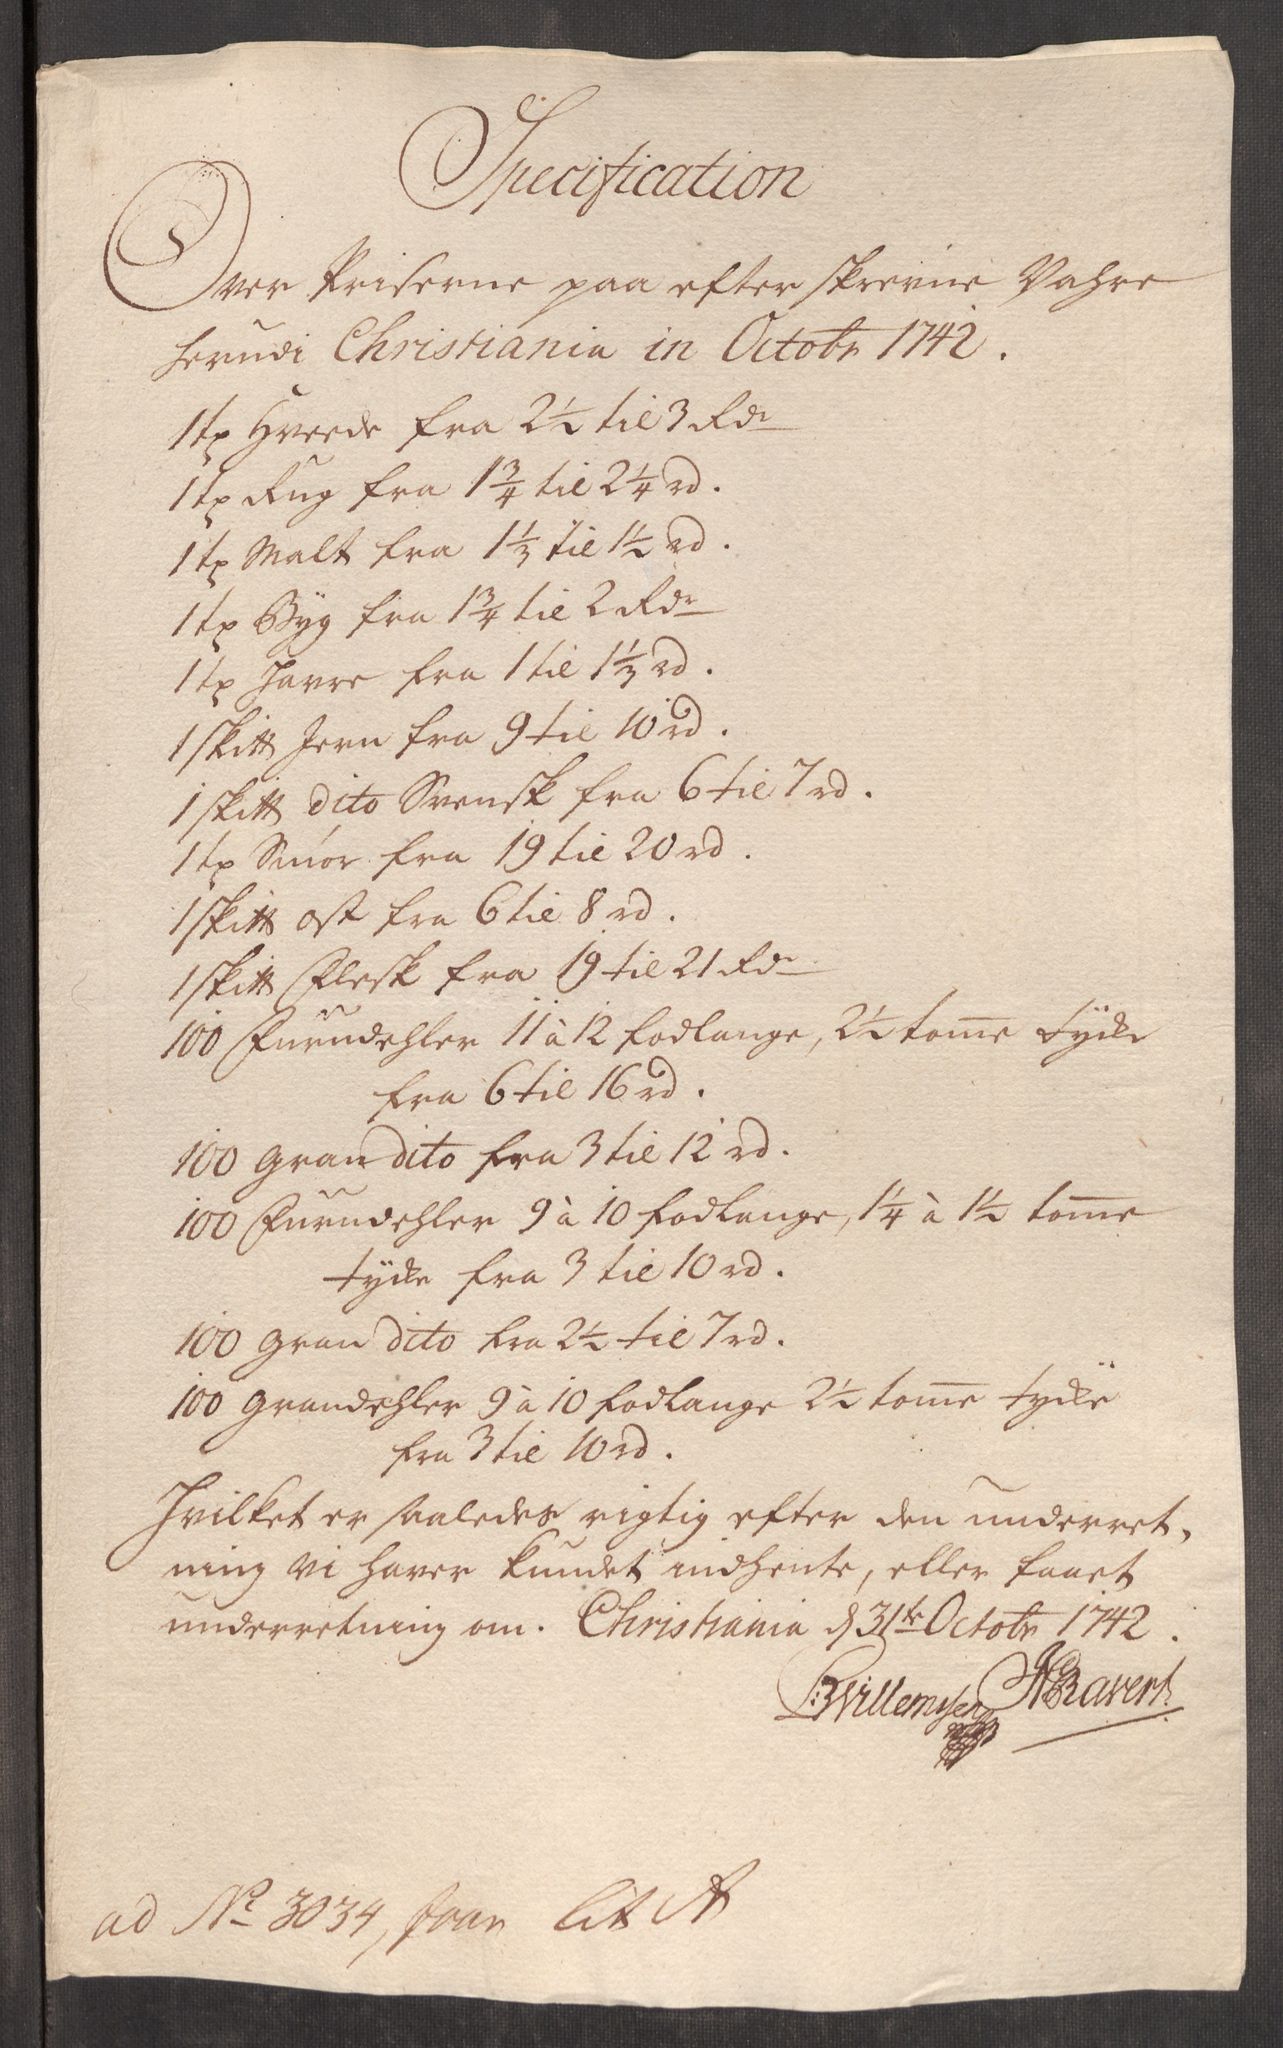 Specification
Over Priserne paa efter skrevne Vahre
herudi Christiania in Octobr 1742.
1 tø Hveede fra 2½ til 3 Rdr
1 tø Rug fra 1¾ til 2¼ rd.
1 tø Malt fra 1⅓ til 1½ rd.
1 tø Byg fra 1¾ til 2 Rdr
1 tø Havre fra 1 til 1⅓ rd.
1 sk℔ Jern fra 9 til 10 rd.
1 sk℔ dito Svensk fra 6 til 7 rd.
1 tø Smör fra 19 til 20 rd.
1 sk℔ ost fra 6 til 8 rd.
1 sk℔ Flesk fra 19 til 21 Rdr
100 Furudehler 11 à 12 fodlange, 2½ tom̅e tycke
fra 6 til 16 rd.
100 Gran dito fra 3 til 12 rd.
100 Furudehler 9 à 10 fodlange, 1¼ à 1½ tom̅e
tycke fra 3 til 10 rd.
100 Gran dito fra 2½ til 7 rd.
100 Grandehler 9 à 10 fodlange 2½ tom̅e tycke
fra 3 til 10 rd.
Hvilket er saaledes rigtig efter den underret,
ning vi haver kundet indhente, eller faaet
underretning om. Christiania d 31te Octobr 1742.
BWillemsen Ravert
ad No 3034, lit A